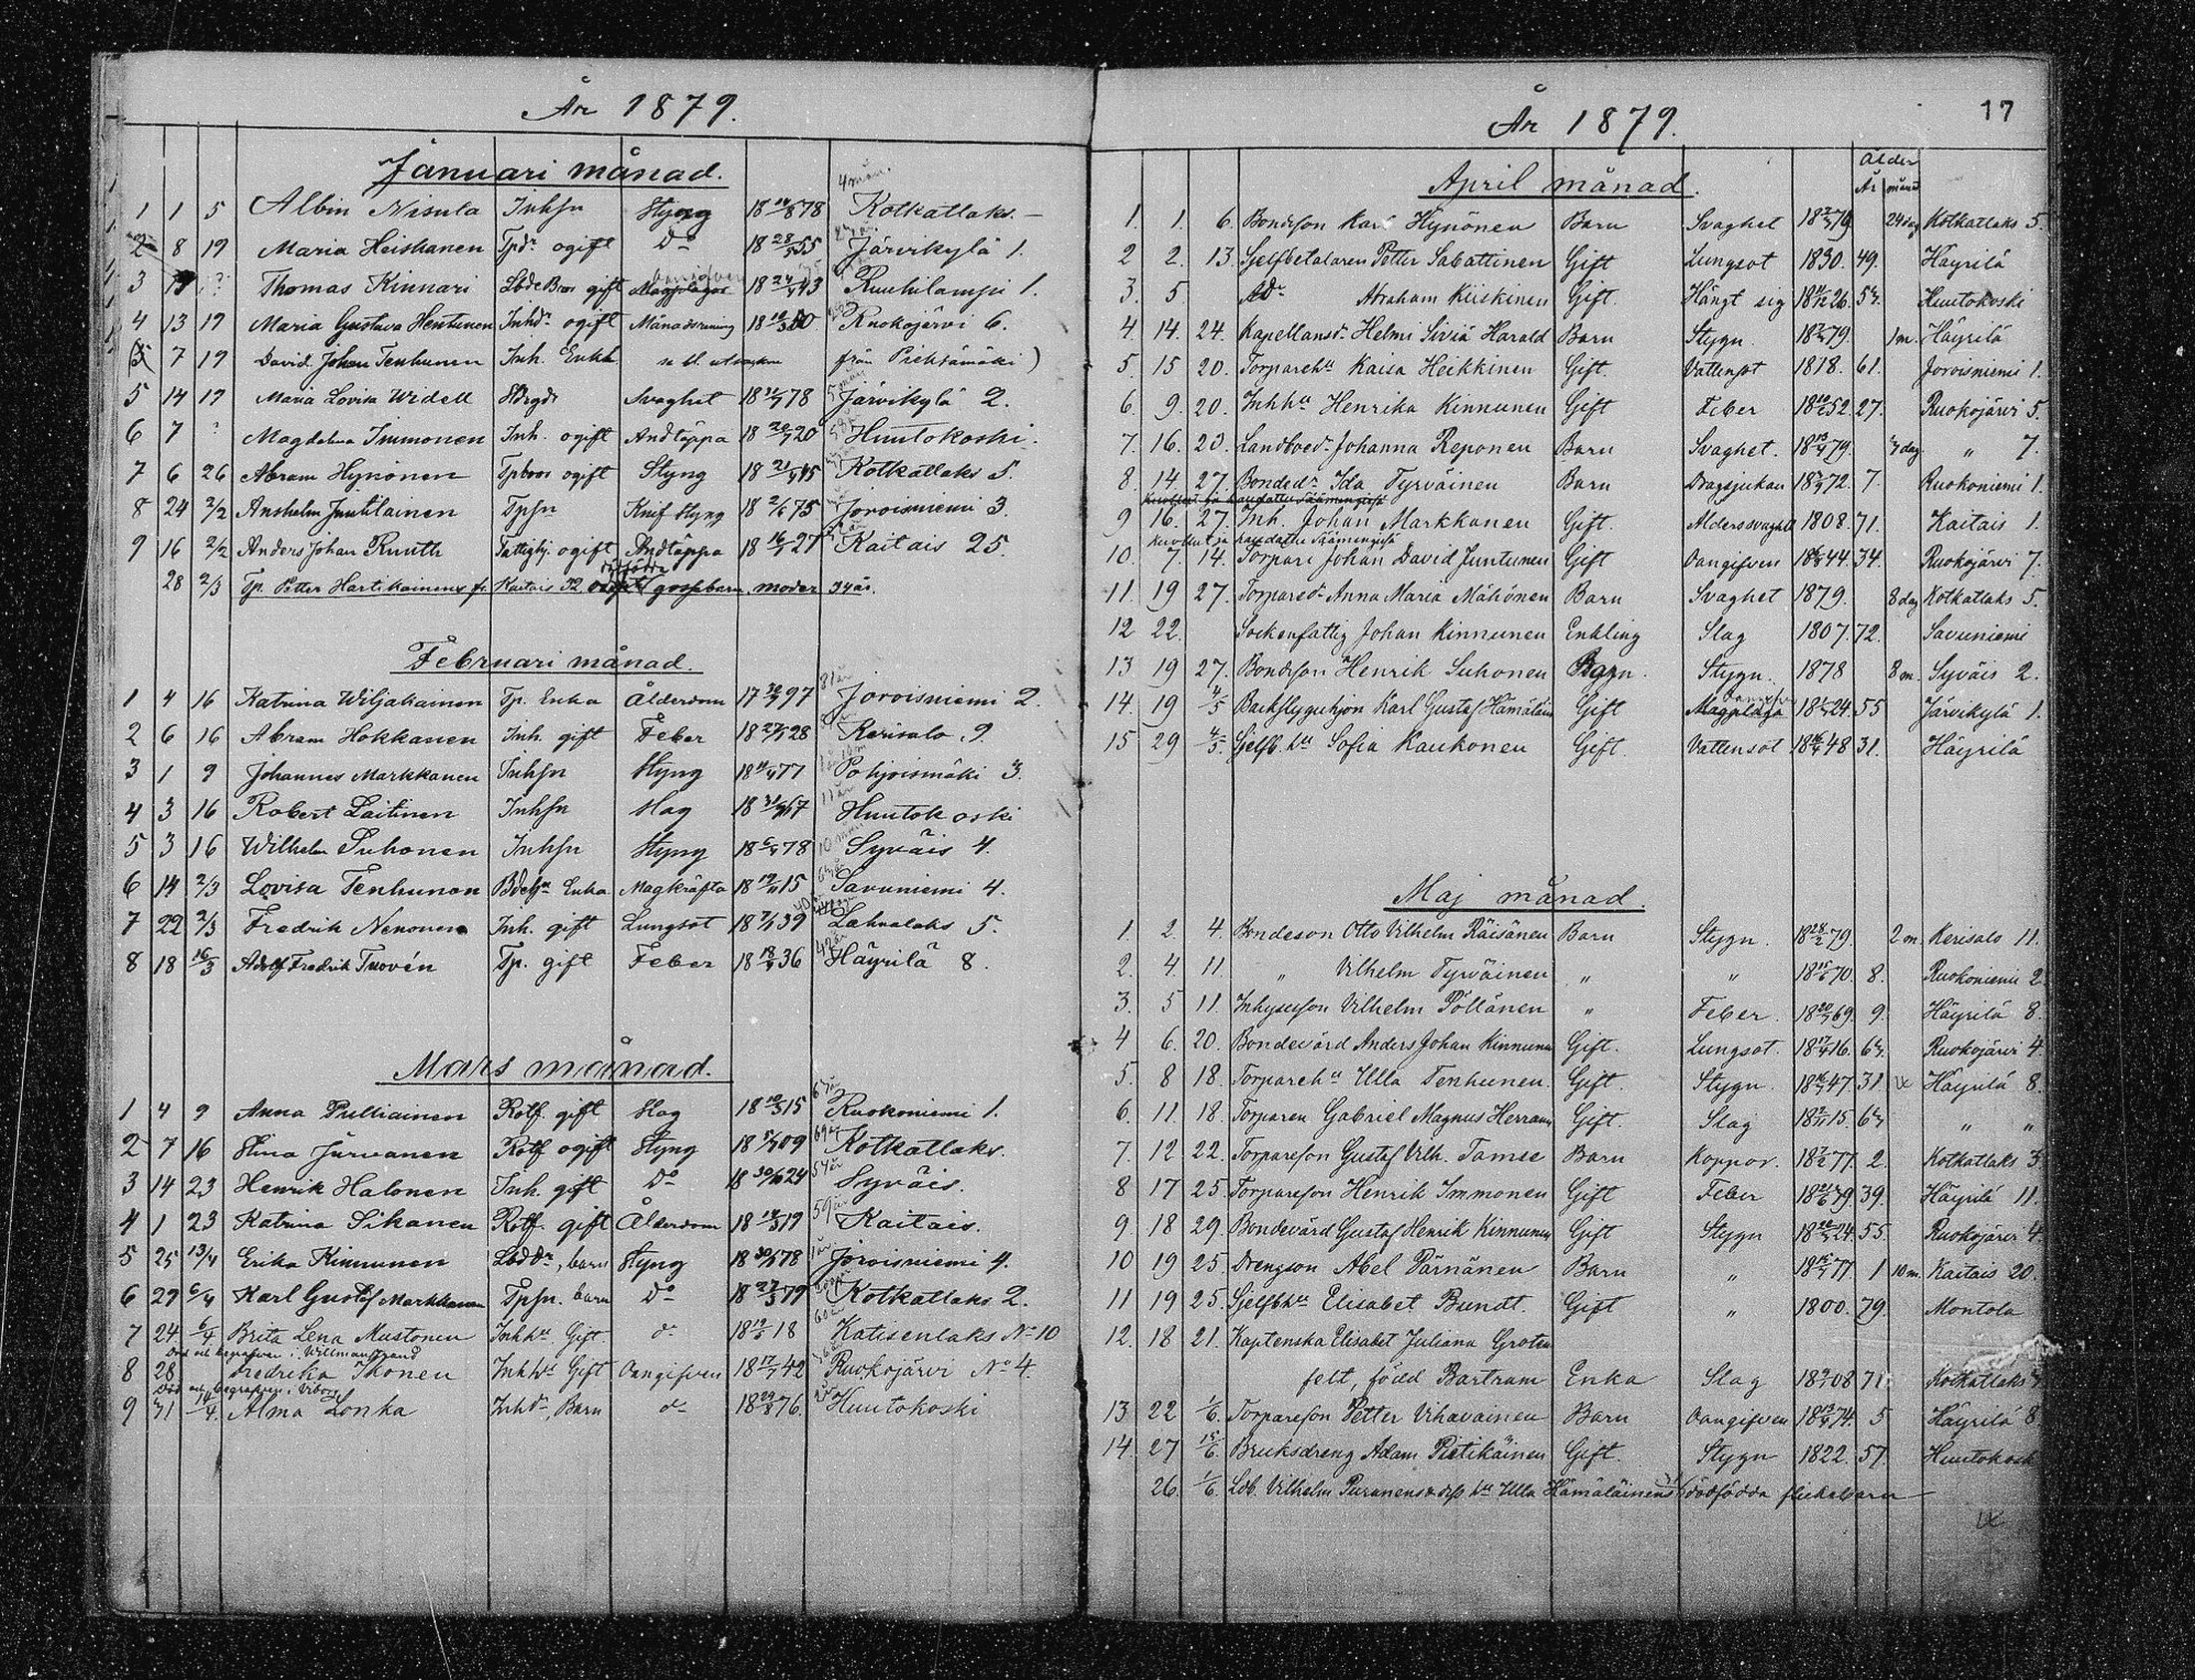 År 1879.
Januari månad.
4 mån.
1 1 5 Albin Nisula Inhsn Styng 18 10/8 78 Kotkatlaks. —
2 8 19 Maria Heiskanen Tpdr ogift Do 18 28/ 55 Järvikylä 1.
3 ? Thomas Kinnari Lbde Bror gift 18 24/ 43 Ruuhilampi 1.
4 13 19 Maria Gustava Hentunen Inhdr ogift Månadsrening 18 Ruokojärvi 6.
7 19 David Johan Tenhunen Inh. Enkl från Pieksämäki)
5 14 19 Maria Lovisa Widell Svaghet 18 78 Järvikylä 2.
6 7 ? Magdalena Immonen Inh. ogift Andtäppa 18 20/7 20 Huutokoski.
7 6 26 Abram Hynönen Tpbror ogift Styng 18 21/ 45 Kotkatlaks 5.
8 24 2/2 Anshelm Juutilainen Tpsn Knif styng 18 2/6 75 Joroisniemi 3.
9 16 2/2 Anders Johan Ruuth Fattighj. ogift Andtäppa 18 16/ 27 Kaitais 25.
dödfödda
28 2/3 Tp. Petter Hartikainens fr. Kaitais 32 gossebarn. moder 34 år.
Februari månad.
1 4 16 Katrina Wiljakainen Tp. Enka Ålderdom 17 30/ 97 81 år Joroisniemi 2.
2 6 16 Abram Hokkanen Inh. gift Feber 18 27/ 28 Kerisalo 9.
3 1 9 Johannes Markkanen Inhsn Styng 18 11/4 77 Pohjoismäki 3.
4 3 16 Robert Laitinen Inhsn Slag 18 31/ 67 11 år Huutokoski
5 3 16 Wilhelm Suhonen Inhsn Styng 18 6/4 78 10 mån Syväis 4.
6 14 2/3 Lovisa Tenhunen Enka Magkräfta 18 19/11 15 Savuniemi 4.
7 22 2/3 Fredrik Nenonen Inh. gift Lungsot 18 7/1 39 Lahnalaks 5.
8 18 16/3 Adolf Fredrik Tuovén Tp. gift Feber 18 18/9 36 42 år Häyrilä 8.
Mars månad.
1 4 9 Anna Pulliainen Rotf. gift Slag 18 10/3 15 Ruokoniemi 1.
2 7 16 Stina Jurvanen Rotf ogift Styng 18 09 69 år Kotkatlaks.
3 14 23 Henrik Halonen Inh. gift Do 18 30/10 24 54 år Syväis.
4 1 23 Katrina Sikanen Rotf. gift Ålderdom 18 14/3 19 59 år Kaitais.
5 25 13/4 Erika Kinnunen Lbddr, barn Styng 18 78 1 år Joroisniemi 4.
6 29 6/4 Karl Gustaf Markkanen Tpsn. barn Do 18 27/3 79 Kotkatlaks 2.
7 24 6/4 Brita Lena Mustonen Inhhu Gift do 18 18 60 år Katisenlaks No 10
Död och begrafven i Willmanstrand
8 28 Fredrika Ikonen Inhhu Gift Oangifven 18 17/7 42 Ruokojärvi No 4.
Död och begrafven i Viborg
9 31 14/4. Alma Lonka Inhdr, Barn do 18 29/8 76. Huutokoski
År 1879. 17
April månad.
Ålder
År månd
1. 1. 6. Bondeson Karl Hynönen Barn Svaghet 18 79 24 dag Kotkatlaks 5.
2 2. 13. Sjelfbetalaren Petter Sabattinen Gift Lungsot 1830. 49. Häyrilä
3. 5 Abraham Kiiskinen Gift. Hängt sig 18 26. 52. Huutokoski
4. 14. 24. Kapellansdr Helmi Siviä Harald Barn Stygn. 18 79. 1 m. Häyrilä
5. 15 20. Torparehu Kaisa Heikkinen Gift. Vattensot 1818. 61. Joroisniemi 1.
6. 9. 20. Inhhu Henrika Kinnunen Gift Feber 18 52. 27. Ruokojärvi 5.
7. 16. 20. Landboedr Johanna Reponen Barn Svaghet. 18 13/4 79. dag „ 7.
8. 14. 27. Bondedr Ida Tyrväinen Barn Dragsjukan 18 72. 7. Ruokoniemi 1.
9 16. 27. Inh. Johan Markkanen Gift. Ålderssvaghet 1808. 71. Kaitais 1.
kuollut ja haudattu Säämingissä
10. 7. 14. Torpare Johan David Juntunen Gift Oangifven 18 44. 34. Ruokojärvi 7.
11. 19 27. Torparedr Anna Maria Mähönen Barn Svaghet 1879. 8 dag Kotkatlaks 5.
12 22. Sockenfattig Johan Kinnunen Enkling Slag 1807. 72. Savuniemi
13 19 27. Bondeson Henrik Suhonen Barn. Stygn. 1878 8 m. Syväis 2.
14. 19 4/5 Backstyguhjon Karl Gustaf Hämäläin Gift 18 24. 55 Järvikylä 1.
15 29 4/5. Sjelfb. hu Sofia Kaukonen Gift. Vattensot 18 48 31. Häyrilä
Maj månad.
1. 2. 4. Bondeson Otto Vilhelm Räisänen Barn Stygn. 18 28/2 79. 2 m. Kerisalo 11.
2. 4. 11. „ Vilhelm Tyrväinen „ „ 18 70. 8. Ruokoniemi 2.
3. 5 11. Inhyseson Vilhelm Pöllänen „ Feber. 18 69. 9. Häyrilä 8.
4 6. 20. Bondevärd Anders Johan Kinnunen Gift. Lungsot. 18 16. 62. Ruokojärvi 4.
5. 8 18. Torparehu Ulla Tenhunen. Gift. Stygn. 18 47. 31. Häyrilä 8.
6. 11. 18. Torparen Gabriel Magnus Herranen Gift. Slag 18 15. „ „
7. 12 22. Torpareson Gustaf Vilh. Tamse Barn Koppor. 18 77. 2. Kotkatlaks 3.
8 17 25. Torpareson Henrik Immonen Gift Feber 18 39. Häyrilä 11.
9. 18 29. Bondevärd Gustaf Henrik Kinnunen Gift Stygn 18 24. 55. Ruokojärvi 4.
10 19 25. Drengson Abel Pärnänen Barn „ 18 77. 1 10 m. Kaitais 20.
11 19 25. Sjelfbhu Elisabet Bundt. Gift „ 1800. 79. Montola
12. 18 21. Kaptenska Elisabet Juliana Groten
felt, född Bartram Enka Slag 18 08 71. Kotkatlaks
13 22 1/6. Torpareson Petter Vihavainen Barn Oangifven 18 13/4 74. 5 Häyrilä 8.
14. 27 15/6. Bruksdreng Adam Pietikäinen Gift. Stygn 1822. 57. Huutokosk
26. 1/6. Ldb. Vilhelm Puranens hu Ulla Hämäläinens dödfödda flickebarn